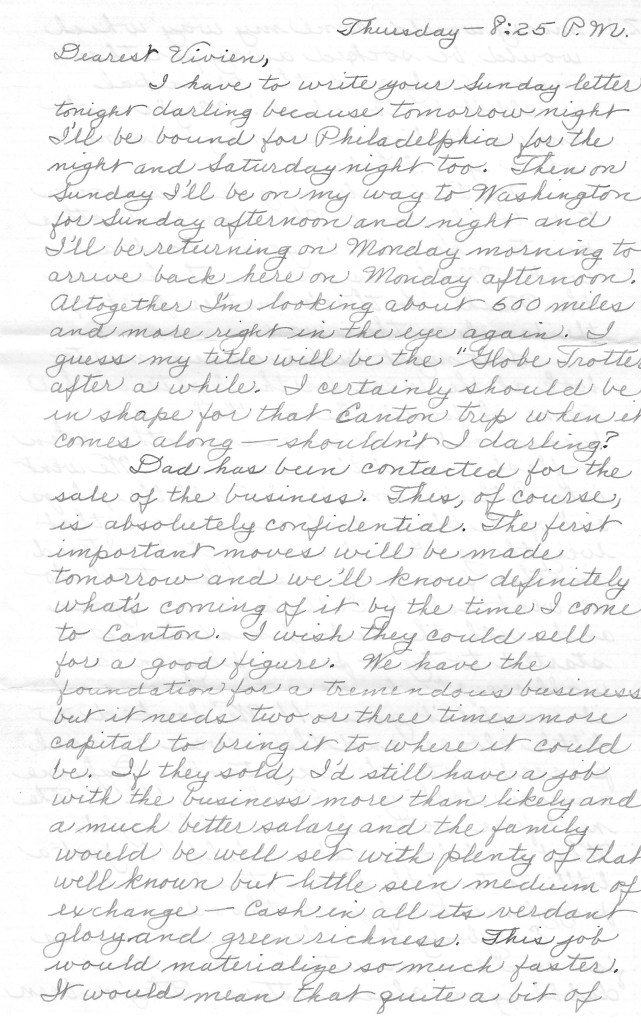 Thursday — 8:25 P.M.
Dearest Vivien,
I have to write your Sunday letter
tonight darling because tomorrow night
I'll be bound for Philadelphia for the
night and Saturday night too. Then on
Sunday I'll be on my way to Washington
for Sunday afternoon and night and
I'll be returning on Monday morning to
arrive back here on Monday afternoon.
Altogether I'm looking about 600 miles
and more right in the eye again. I
guess my title will be the "Globe Trotter
after a while. I certainly should be
in shape for that Canton trip when it
comes along — shouldn't I darling?
Dad has been contacted for the
sale of the business. This, of course,
is absolutely confidential. The first
important moves will be made
tomorrow and we'll know definitely
what's coming of it by the time I come
to Canton. I wish they could sell
for a good figure. We have the
foundation for a tremendous business
but it needs two or three times more
capital to bring it to where it could
be. If they sold, I'd still have a job
with the business more than likely and
a much better salary and the family
would be well set with plenty of that
well known but little seen medium of
exchange — Cash in all its verdant
glory and green richness. This job
would materialize so much faster.
It would mean that quite a bit of